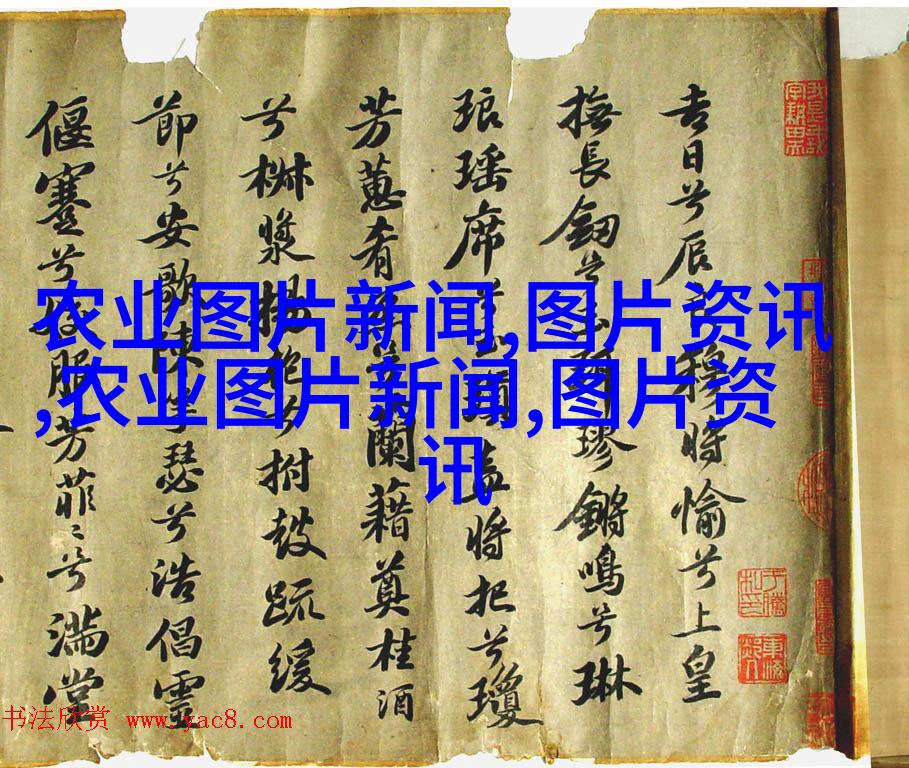 吉日兮辰穆將愉兮上皇
撫長劒兮璆鏘鳴兮琳
琅瑶席兮玉瑱盍將把兮瓊
芳蕙肴兮蘭藉奠桂酒
兮椒漿揚枹兮拊鼓疏緩
節兮安歌陳竽瑟兮浩倡靈
偃蹇兮服芳菲〻兮滿堂
农业图片新闻,图片资讯
,农业图片新闻,图片资
讯
书法欣赏 www.yac8.com